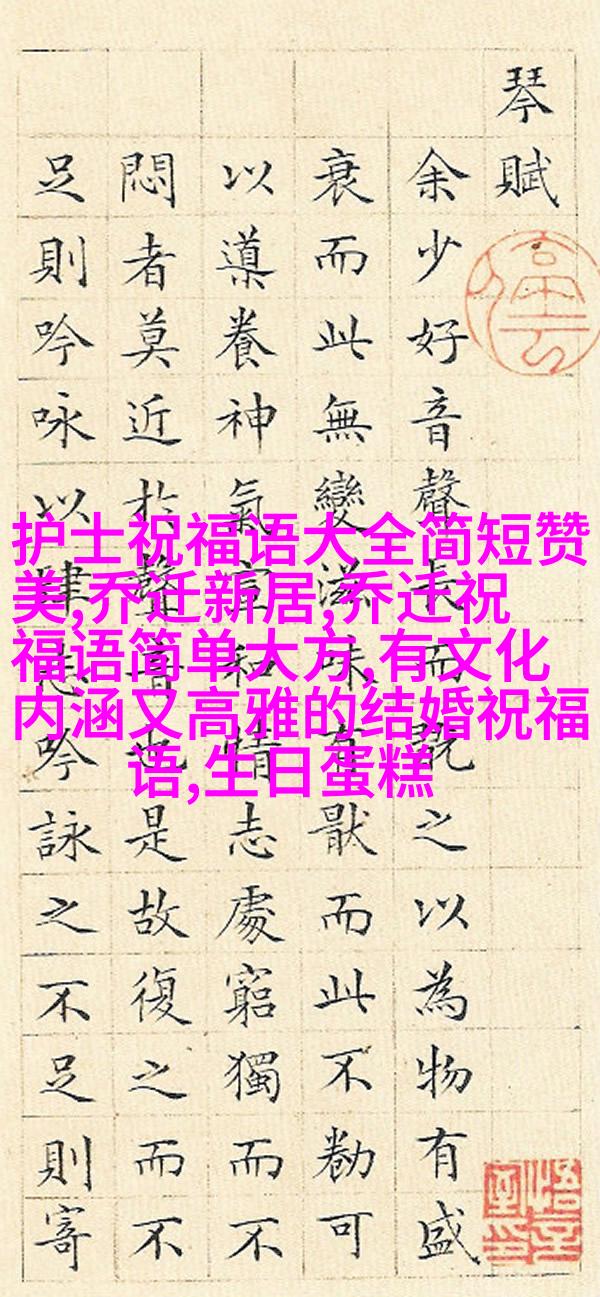 琴賦
余少好音聲長而翫之以為物有盛
衰而此無變滋味有猒而此不勌可
以導養神氣宣和情志處窮獨而不
悶者莫近於聲音也是故復之而不
足則吟咏以肆志吟詠之不足則寄
护士祝福语大全简短赞
美,乔迁新居,乔迁祝
福语简单大方,有文化
内涵又高雅的结婚祝福
语,生日蛋糕